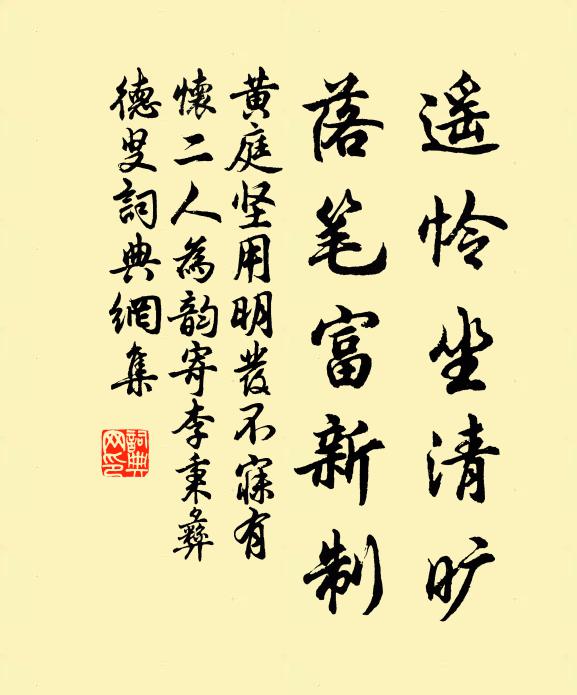 遥怜坐清旷
落笔富新制
黄庭坚用明发不寐有
怀二人为韵寄李秉彝
德叟詞典網集
詞典
网印